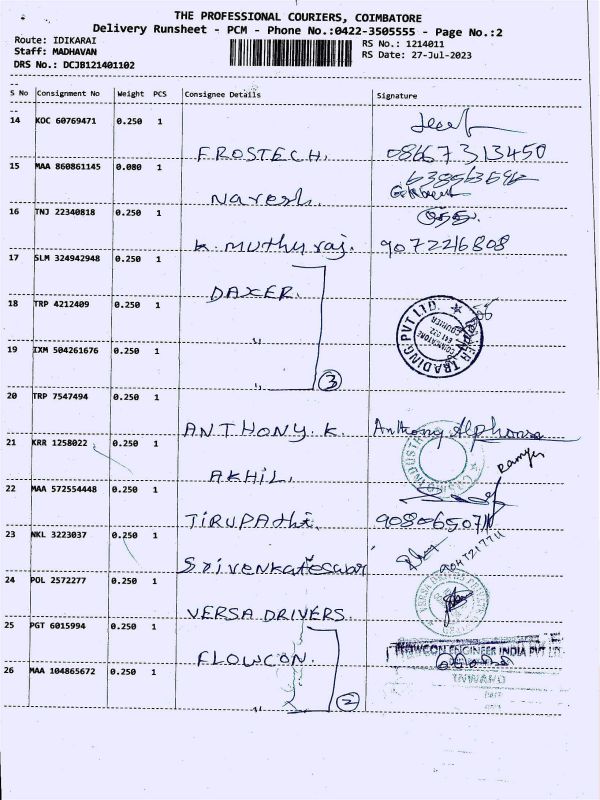 THE PROFESSIONAL COURIERS, COIMBATORE
Delivery Runsheet - PCM - Phone No.:0422-3505555 - Page No.:2
Route: IDIKARAI RS No.: 1214011
Staff: MADHAVAN RS Date: 27-Jul-2023
DRS No.: DCJB121401102
S No Consignment No Weight PCS Consignee Details Signature
14 KOC 60769471 0.250 1
FROSTECH. 08667313450
15 MAA 860861145 0.080 1
Naresh.
16 TNJ 22340818 0.250 1
K. Muthu raj. 9072216808
17 SLM 324942948 0.250 1
DAXER.
18 TRP 4212409 0.250 1
"
19 IXM 504261676 0.250 1
" 3
20 TRP 7547494 0.250 1
ANTHONY. K. Anthony Alphonsa
21 KRR 1258022 0.250 1
AKHIL. Ramya
22 MAA 572554448 0.250 1
TIRUPAthi.
23 NKL 3223037 0.250 1
Srivenkateswar
24 POL 2572277 0.250 1
VERSA DRIVERS.
25 PGT 6015994 0.250 1
FLOWCON. FLOWCON ENGINEER INDIA PVT LTD.
26 MAA 104865672 0.250 1 INWARD
" 2